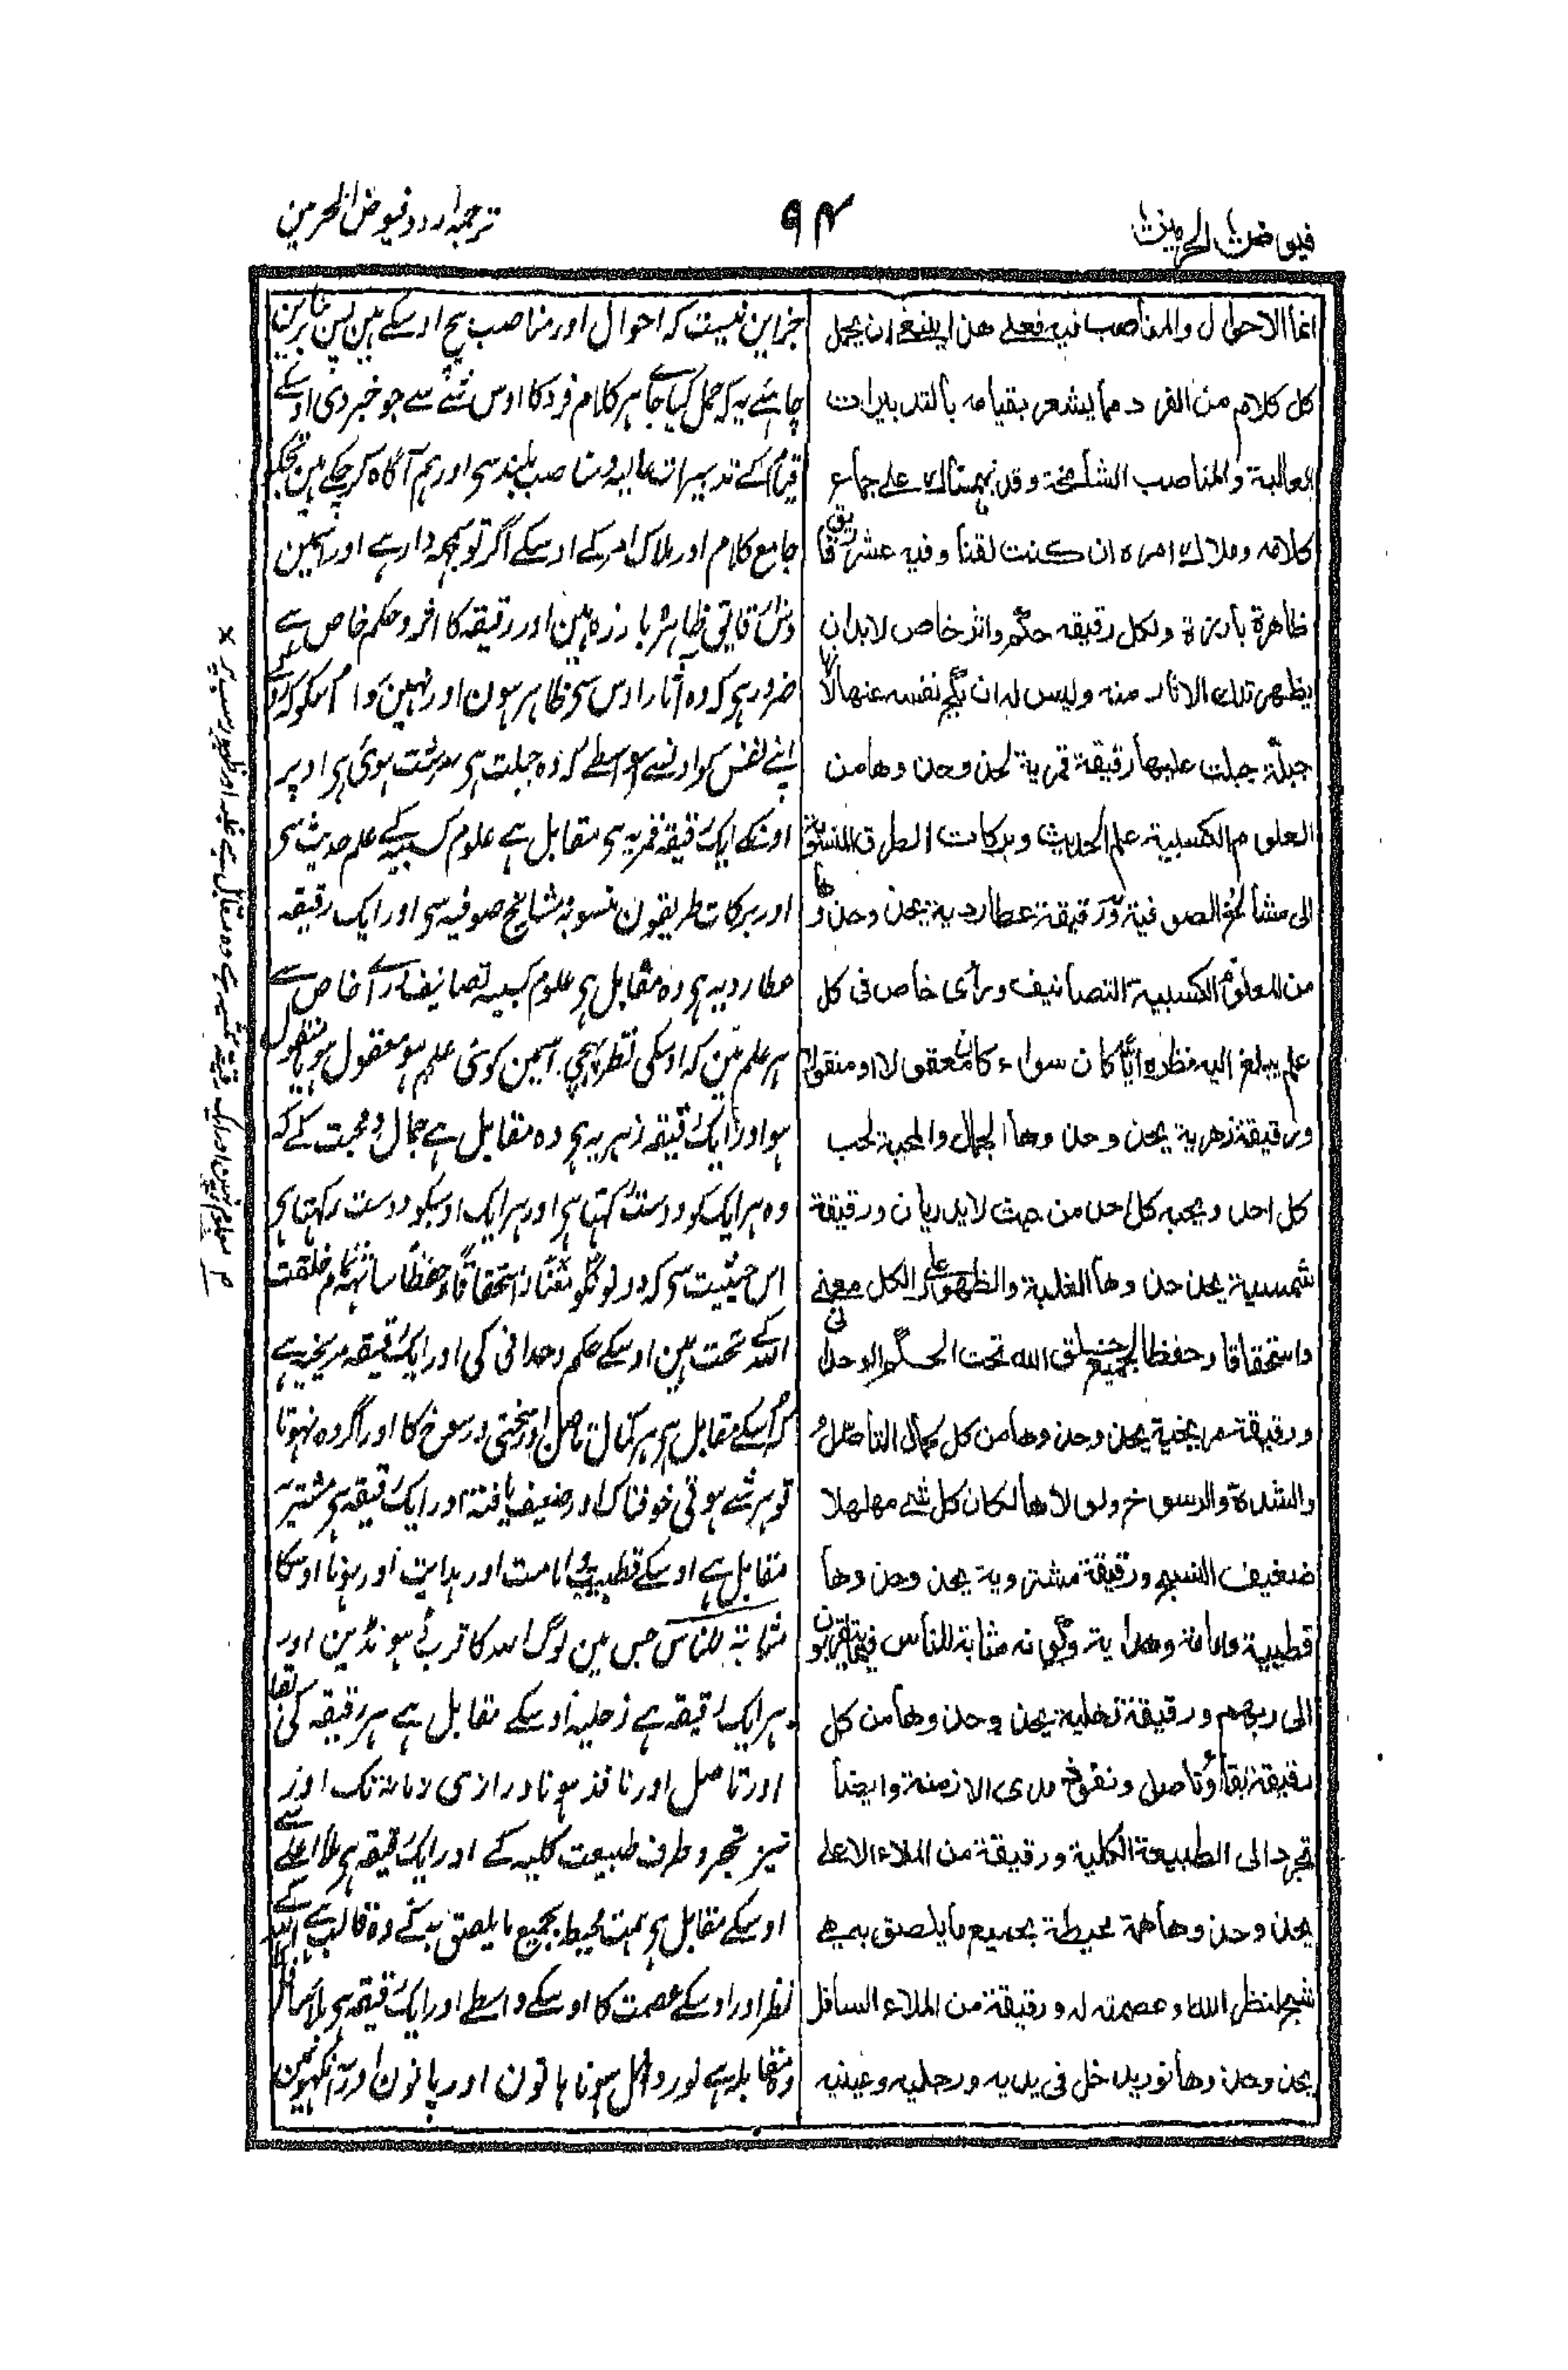 فیوض الحرمین
۹۴
ترجمہ اردو فیوض الحرمین
انما الاحوال والمناصب فیه فعلی هذا ینبغی ان یحمل
کل کلام من الفرد مما یشعر بقیامه بالتدبیرات
العالیة والمناصب الشامخة وقد نبهناك علی جماع
کلامه وملاك امره ان کنت لقنا وفیه عشر رقائق
ظاهرة بارزة ولکل رقیقه حکم واثر خاص لابد ان
یظهر تلك الاثار منه ولیس له ان یکبح نفسه عنها لانها
جبلّة جبلت علیها رقیقة قمریة یحذو حذوها من
العلوم الکسبیة علم الحدیث وبرکات الطرق المنسوبة
الی مشائخ الصوفیة ورقیقة عطاردیة یحذو حذوها
من العلوم الکسبیة التصانیف ورأی خاص فی کل
علم یبلغ الیه نظره ایّا کان سواء کان معقولا او منقولا
ورقیقة زهریة یحذو حذوها الجمال والمحبة لحب
کل احد ویحبه کل احد من حیث لا یدریان ورقیقة
شمسیة یحذو حذوها الغلبة والظهور علی الکل معنی
واستحقاقا وحفظا لجمیع خلق الله تحت الحکم الوحدانی
ورقیقة مریخیة یحذو حذوها من کل کمال التاصل و
والشدة والرسوخ ولولاها لکان کل شے مهلهلا
ضعیف النسج ورقیقة مشترویة یحذو حذوها
قطبیة وامامة وهدایة وکونه مثابة للناس فیما یتقربون
الی ربهم ورقیقة زحلیة یحذو حذوها من کل
رقیقة بقاء وتاصل ونفوذ مدی الازمنة وایضا
تجرد الی الطبیعة الکلیة ورقیقة من الملاء الاعلی
یحذو حذوها همة محیطة بجمیع ما یلصق به هی
شبح لنظر الله وعصمته له ورقیقة من الملاء السافل
یحذو حذوها نور یدخل فی یدیه ورجلیه وعینیه
جز این نیست کہ احوال اور مناصب بیچ اوسکے ہین پس بنابرین
چاہئے یہ کہ حمل کیا جائے ہر کلام فرد کا اوس شئے سے جو خبر دی اوسکے
قیام کے تدبیرات عالیہ و مناصب بلند سی اور ہم آگاہ کر چکے ہین تجکو
جامع کلام اور ملاک امر کے اوسکے اگر تو سمجہدار ہے اور اسمین
دش رقایق ظاہر بارزہ ہین اور رقیقہ کا اثر و حکم خاص ہے
ضرور ہی کہ وہ آثار اوس سی ظاہر ہون اور نہین روا اسکو کہ
اپنے نفس کو اونسے اسواسطے کہ وہ جبلت ہی سرشت ہوئی ہی اوپر
اونکے ایک رقیقہ قمریہ سی مقابل ہے علوم کسبیہ کے علم حدیث سی
اور برکات طریقون منسوبہ مشائخ صوفیہ سی اور ایک رقیقہ
عطاردیہ ہی وہ مقابل ہی علوم کسبیہ تصانیف رائے خاص سے
ہر علم مین کہ اوسکی نظر پہنچی اسمین کوئی علم ہو معقول ہو یا منقول
ہو اور ایک رقیقہ زہریہ ہی وہ مقابل ہے جمال و محبت کے کہ
وہ ہر ایک کو دوست رکہتا ہی اور ہر ایک اوسکو دوست رکہتا ہی
اس حیثیت سی کہ دونونکو
اللہ کے تحت ہین اوسکے حکم وحدانی کی اور ایک رقیقہ مریخیہ ہے
کہ اسکے مقابل ہی ہر کمال تاصل اور سختی و رسوخ کا اور اگر وہ نہوتا
تو ہر شے ہوتی خوفناک اور ضعیف یافتہ اور ایک رقیقہ ہی مشتریہ
مقابل ہے اوسکے قطبیت و امامت اور ہدایت اور ہونا اوسکا
مثابۃ للناس جس مین لوگ اللہ کا قرب ڈہونڈین اور
ہر ایک رقیقہ ہے زحلیہ اوسکے مقابل ہے ہر رقیقہ کی بقا
اور تاصل اور نافذ ہونا درازی زمانہ تک اور
نیز تجرد طرف طبیعت کلیہ کے اور ایک رقیقہ ہی ملاء اعلے سے
اوسکے مقابل ہی ہمت محیط بجمیع ما یلصق بہ کے وہ قالب ہے اللہ کے
نظر اور اوسکے عصمت کا اوسکے واسطے اور ایک رقیقہ ہی ملاء سافل
وہ مقابلہ ہے نور داخل ہونا ہاتون اور پانون اور آنکہونمین